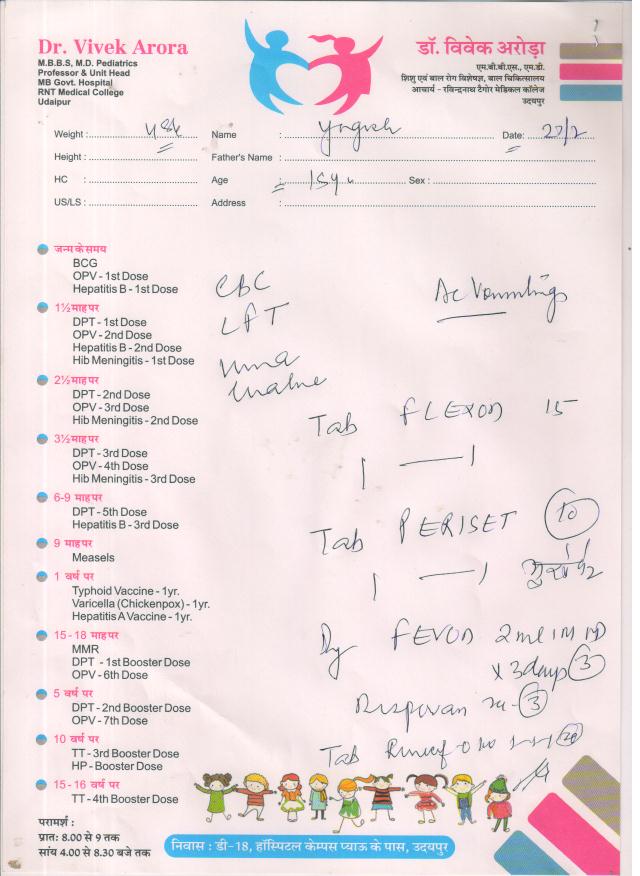 Dr. Vivek Arora
M.B.B.S, M.D. Pediatrics
Professor & Unit Head
MB Govt. Hospital
RNT Medical College
Udaipur
डॉ. विवेक अरोड़ा
एम.बी.बी.एस., एम.डी.
शिशु एवं बाल रोग विशेषज्ञ, बाल चिकित्सालय
आचार्य - रविन्द्रनाथ टैगोर मेडिकल कॉलेज
उदयपुर
Weight : Name : Yogesh Date: 27/2
Height : Father's Name :
HC : Age : 15y Sex :
US/LS : Address :
जन्म के समय
BCG
OPV - 1st Dose
Hepatitis B - 1st Dose
1½ माह पर
DPT - 1st Dose
OPV - 2nd Dose
Hepatitis B - 2nd Dose
Hib Meningitis - 1st Dose
2½ माह पर
DPT - 2nd Dose
OPV - 3rd Dose
Hib Meningitis - 2nd Dose
3½ माह पर
DPT - 3rd Dose
OPV - 4th Dose
Hib Meningitis - 3rd Dose
6-9 माह पर
DPT - 5th Dose
Hepatitis B - 3rd Dose
9 माह पर
Measels
1 वर्ष पर
Typhoid Vaccine - 1yr.
Varicella (Chickenpox) - 1yr.
Hepatitis A Vaccine - 1yr.
15-18 माह पर
MMR
DPT - 1st Booster Dose
OPV - 6th Dose
5 वर्ष पर
DPT - 2nd Booster Dose
OPV - 7th Dose
10 वर्ष पर
TT - 3rd Booster Dose
HP - Booster Dose
15-16 वर्ष पर
TT - 4th Booster Dose
CBC
LFT
Ac Vommitings
Tab FLEXON 15
1 — 1
Tab PERISET 10
1 — 1
FEVON 2ml IM
x 3 days 3
3
Tab
परामर्श :
प्रात: 8.00 से 9 तक
सांय 4.00 से 8.30 बजे तक
निवास : डी-18, हॉस्पिटल केम्पस प्याऊ के पास, उदयपुर